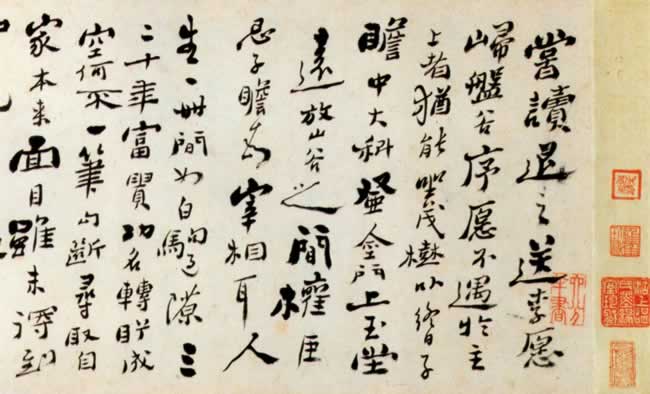 嘗讀退之送李愿
歸盤谷序愿不遇於主
上者猶能坐茂樹以終日子
瞻中大科登金門上玉堂
遠放山谷之間權臣
忌子瞻為宰相耳人
生一世間如白駒過隙三
二十年富貴功名轉眄成
空何不一筆勾斷尋取自
家本来面目雖未得到